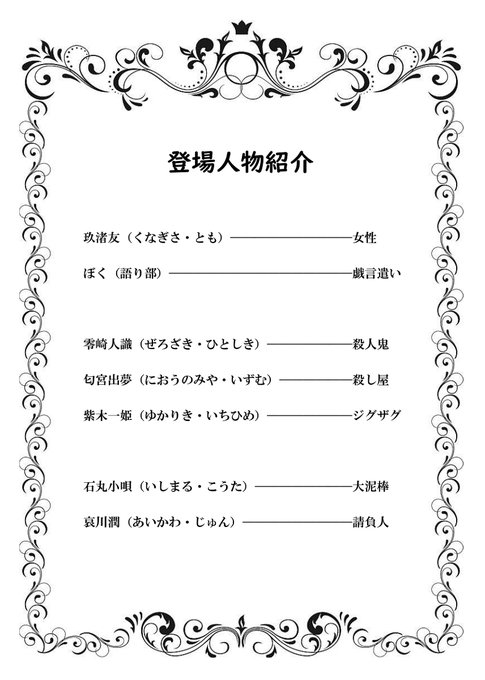 登場人物紹介
玖渚友（くなぎさ・とも）――――――――――女性
ぼく（語り部）―――――――――――――――戯言遣い
零崎人識（ぜろざき・ひとしき）―――――――殺人鬼
匂宮出夢（におうのみや・いずむ）――――――殺し屋
紫木一姫（ゆかりき・いちひめ）―――――――ジグザグ
石丸小唄（いしまる・こうた）――――――――大泥棒
哀川潤（あいかわ・じゅん）―――――――――請負人